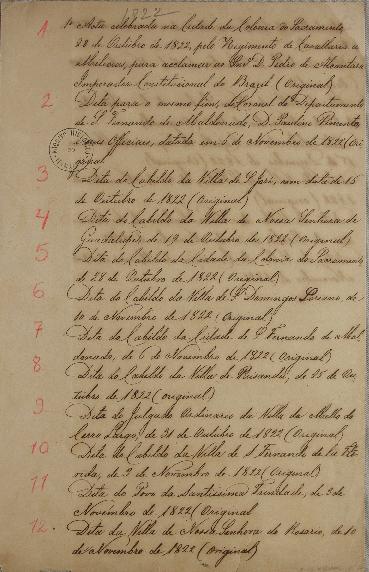 1822
1 1ª Acta celebrada na Cidade da Colonia do Sacramento,
28 de Outubro de 1822, pelo Regimento de Cavallaria de
Milicias, para acclamar ao Snr. D. Pedro de Alcantara
Imperador Constitucional do Brazil (Original)
2 Dita para o mesmo fim, do Coronel do Departamento
de S. Fernando de Maldonado, D. Paulino Pimenta
e seus Officiaes, datada em 5 de Novembro de 1822 (Ori
ginal)
3 Dita do Cabildo da Villa de S. José, com data de 15
de Outubro de 1822 (Original)
4 Dita do Cabildo da Villa de Nossa Senhora de
Guadalupe, de 19 de Outubro de 1822 (Original)
5 Dita do Cabildo da Cidade da Colonia do Sacramento
de 28 de Outubro de 1822 (Original)
6 Dita do Cabildo da Villa de S. Domingos Soriano, de
10 de Novembro de 1822 (Original)
7 Dita do Cabildo da Cidade de S. Fernando de Mal
donado, de 6 de Novembro de 1822 (Original)
8 Dita do Cabildo da Villa de Paisandú, de 25 de Ou
tubro de 1822 (Original)
9 Dita do Julgado Ordinario da Villa de Mello do
Cerro Largo, de 31 de Outubro de 1822 (Original)
10 Dita do Cabildo da Villa de S. Fernando de la Flo
rida, de 2 de Novembro de 1822 (Original)
11 Dita do Povo da Santissima Trindade, de 3 de
Novembro de 1822 (Original
12. Dita da Villa de Nossa Senhora do Rosario, de 10
de Novembro de 1822 (Original)